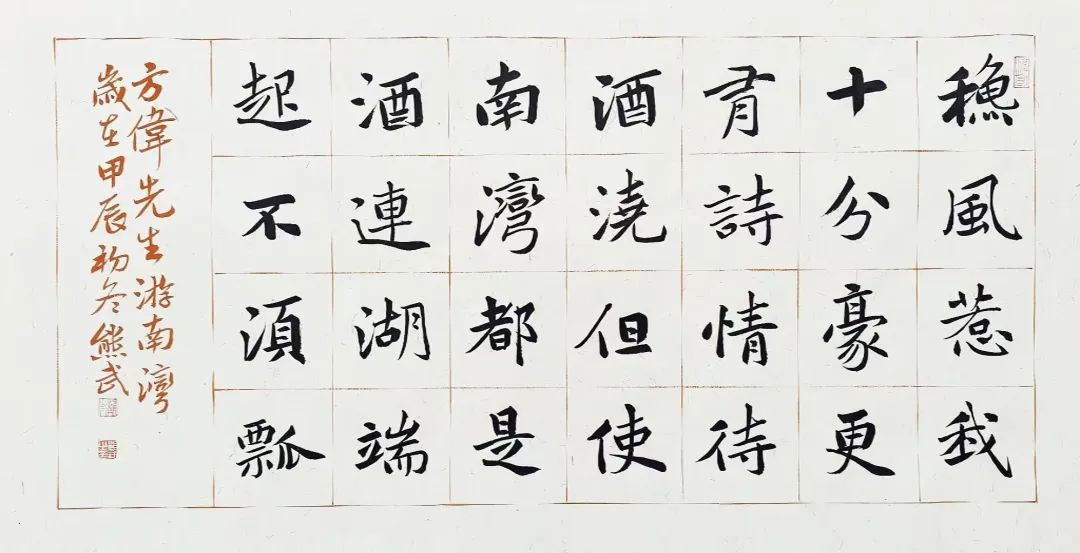 穐風惹我
十分豪更
有詩情待
酒澆但使
南灣都是
酒連湖端
起不湏瓢
方偉先生游南灣
歲在甲辰初冬熊武